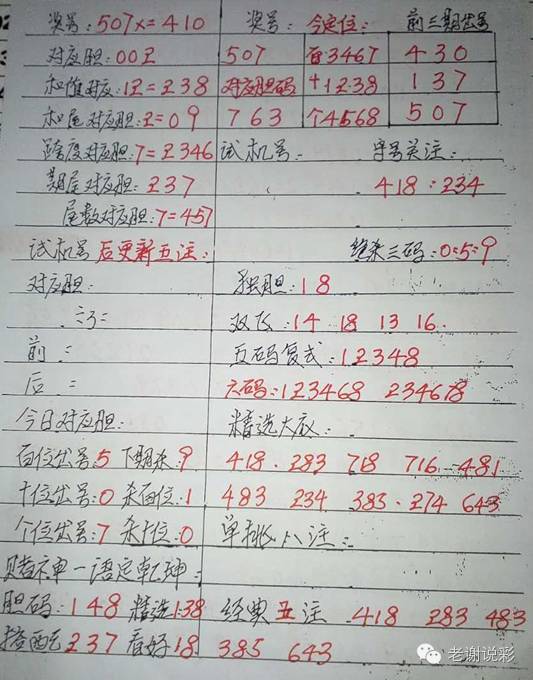 奖号:507x=410 奖号: 今定位: 前三期出号
对应胆:002 507 百3467 430
和值对应:12=238 对应胆码 十1238 137
和尾对应胆:2=09 763 个4568 507
跨度对应胆:7=2346 试机号: 守号关注:
期尾对应胆:237 418:234
尾数对应胆:7=457
试机号后更新五注: 绝杀三码:0:5:9
对应胆: 独胆:18
双飞:14 18 13 16.
前: 五码复式:12348
后: 六码:123468 234678
今日对应胆: 精选大底:
百位出号:5 下期杀:9 418. 283 718 716 481
十位出号:0 杀百位:1 483 234 383. 274 643
个位出号:7 杀十位:0 单挑八注:
赌神一语定乾坤:
胆码:148 精选138 经典五注 418 283 483
搭配237 看好18 385 643
老谢说彩